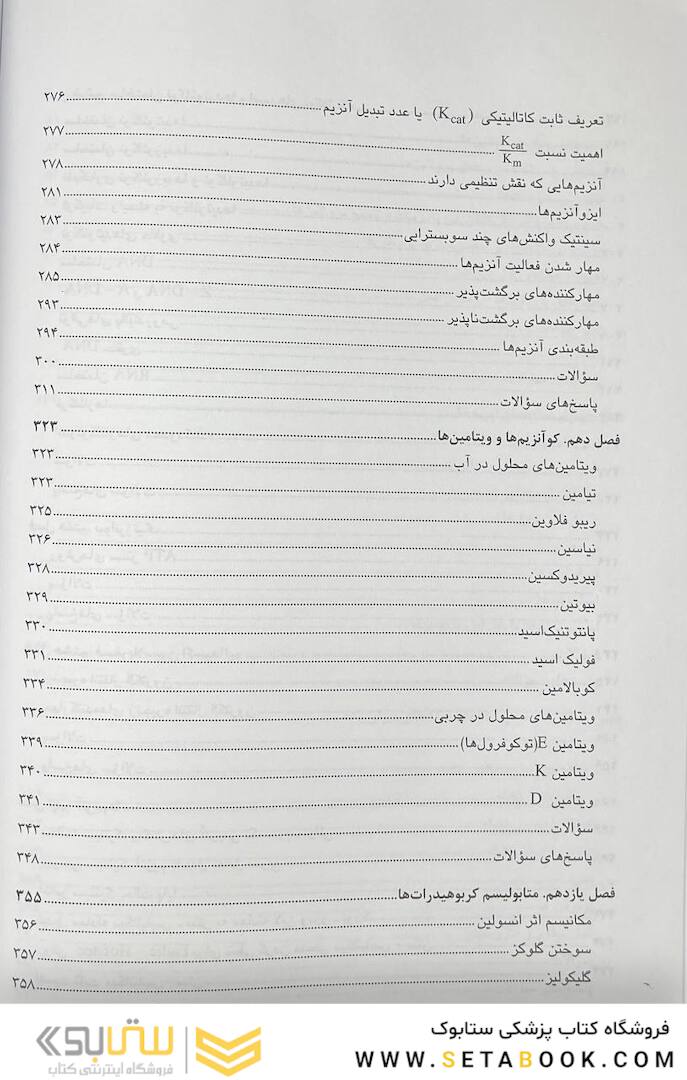 تعریف ثابت کاتالیتیکی (Kcat) یا عدد تبدیل آنزیم ۲۷۶
اهمیت نسبت Kcat/Km ۲۷۷
آنزیم‌هایی که نقش تنظیمی دارند ۲۷۸
ایزوآنزیم‌ها ۲۸۱
سینتیک واکنش‌های چند سوبسترایی ۲۸۳
مهار شدن فعالیت آنزیم‌ها ۲۸۴
مهارکننده‌های برگشت‌پذیر ۲۸۵
مهارکننده‌های برگشت‌ناپذیر ۲۹۳
طبقه‌بندی آنزیم‌ها ۲۹۴
سؤالات ۳۰۰
پاسخ‌های سؤالات ۳۱۱
فصل دهم. کوآنزیم‌ها و ویتامین‌ها ۳۲۳
ویتامین‌های محلول در آب ۳۲۳
تیامین ۳۲۳
ریبو فلاوین ۳۲۵
نیاسین ۳۲۶
پیریدوکسین ۳۲۸
بیوتین ۳۲۹
پانتوتنیک‌اسید ۳۳۰
فولیک اسید ۳۳۱
کوبالامین ۳۳۴
ویتامین‌های محلول در چربی ۳۳۶
ویتامین E(توکوفرول‌ها) ۳۳۹
ویتامین K ۳۴۰
ویتامین D ۳۴۱
سؤالات ۳۴۳
پاسخ‌های سؤالات ۳۴۸
فصل یازدهم. متابولیسم کربوهیدرات‌ها ۳۵۵
مکانیسم اثر انسولین ۳۵۶
سوختن گلوکز ۳۵۷
گلیکولیز ۳۵۸
فروشگاه کتاب پزشکی ستابوک
WWW.SETABOOK.COM
ستابوک
فروشگاه اینترنتی کتاب